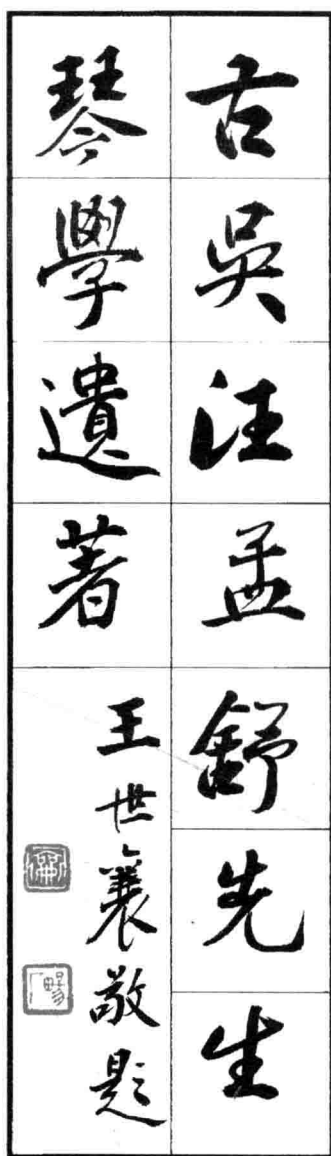 古吳汪孟舒先生
琴學遺著
王世襄敬題
暢